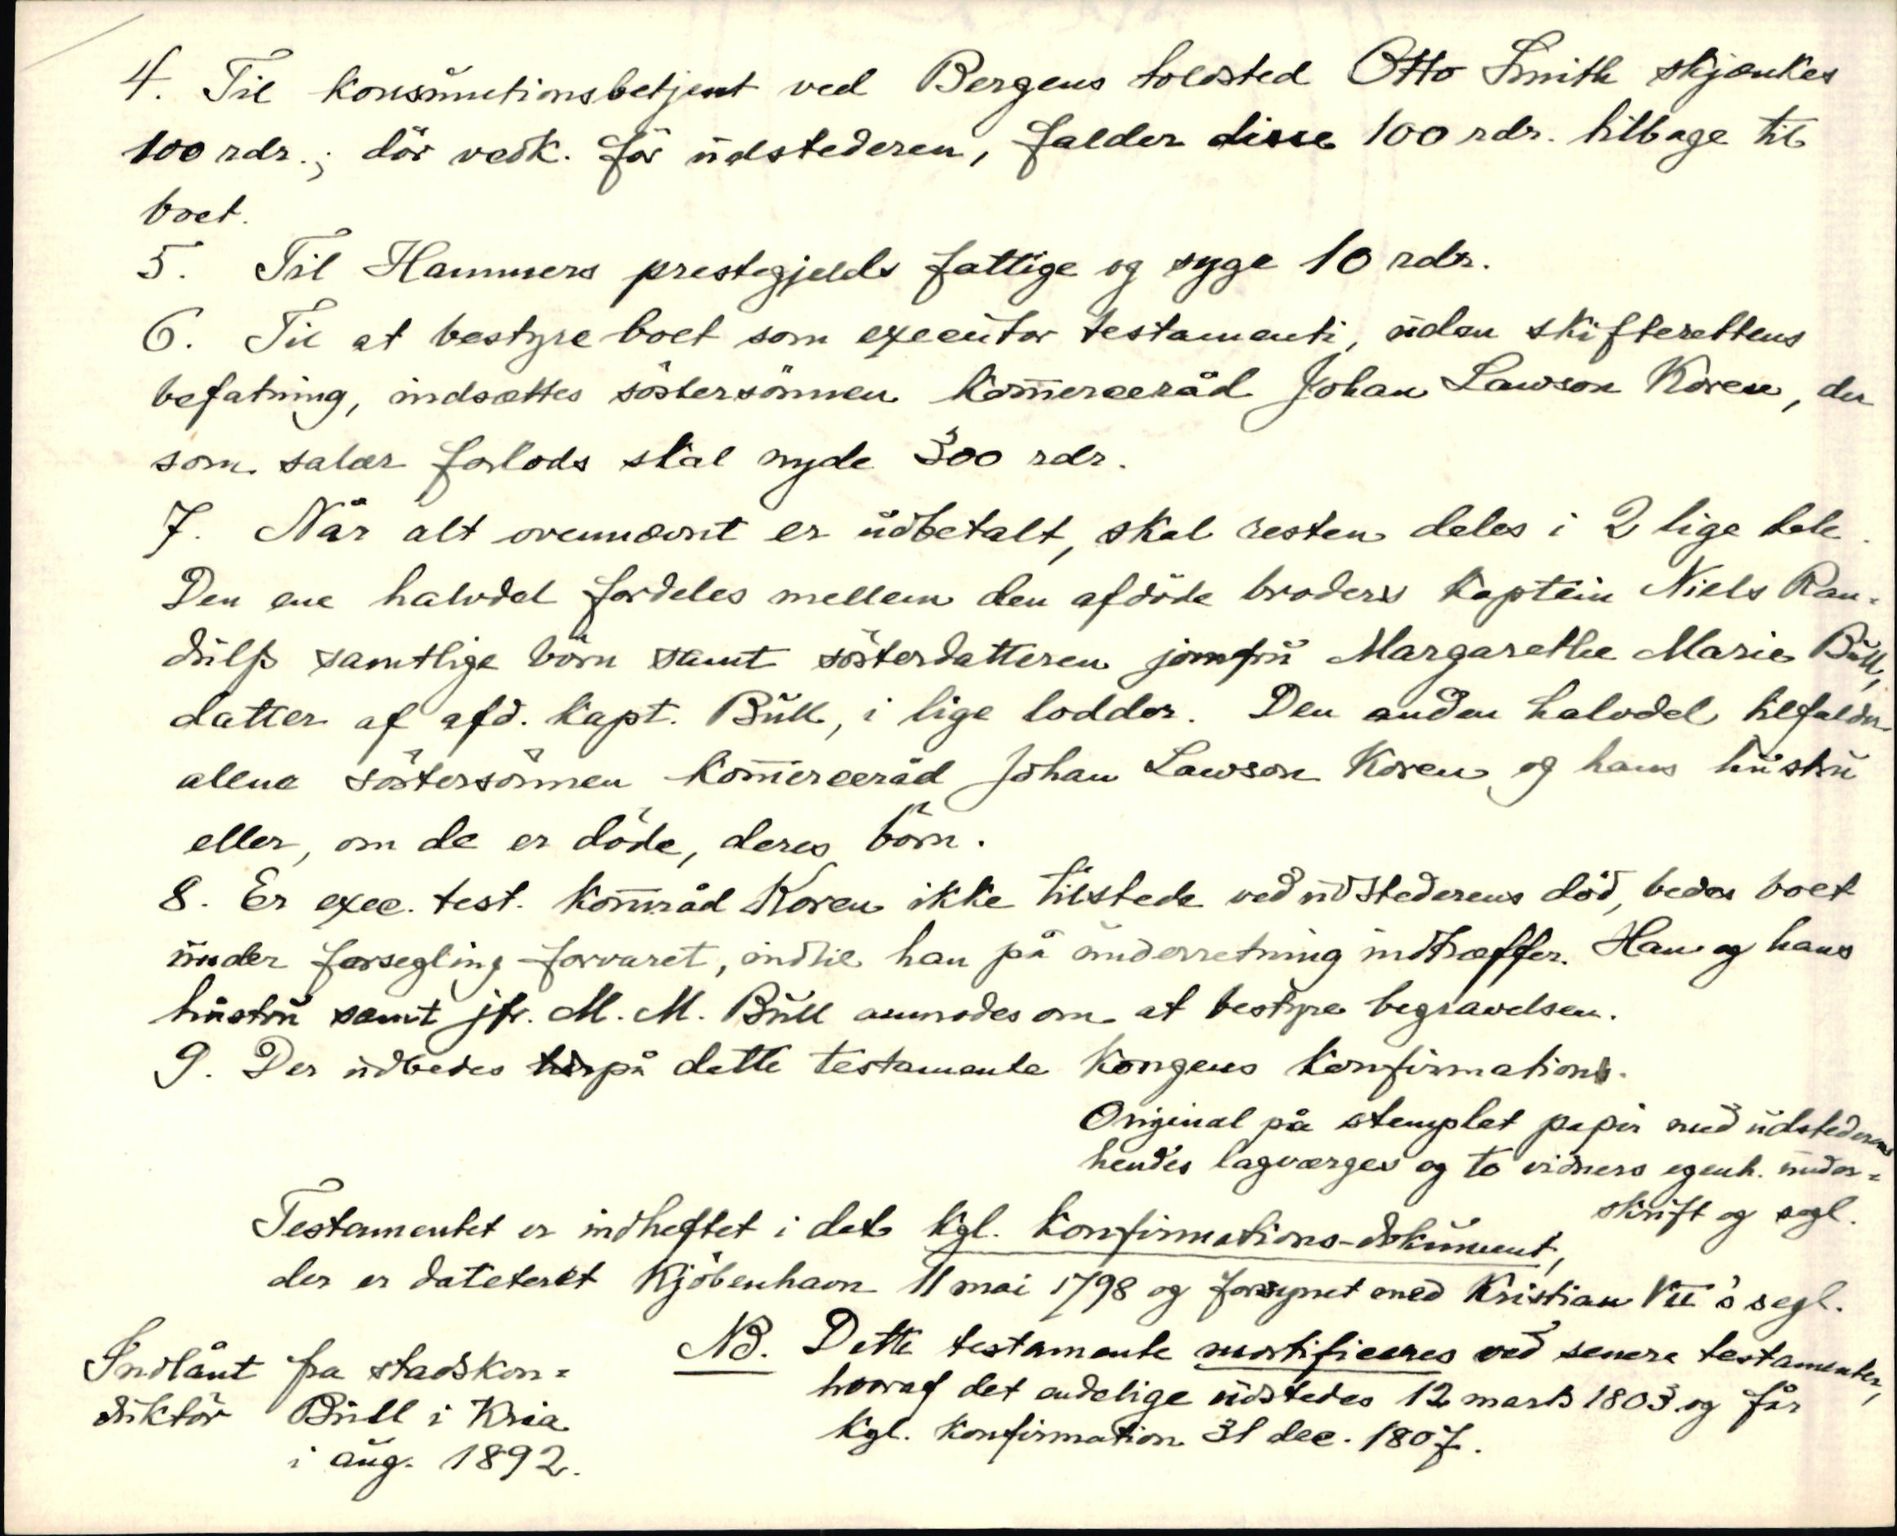 4. Til konsumtionsbetjent ved Bergens toldsted Otto Smith skjænkes
100 rdr.; dör vedk. för udstederen, falder disse 100 rdr. tilbage til
boet.
5. Til Hammers prestegjelds fattige og syge 10 rdr.
6. Til at bestyre boet som executor testamenti, uden skifterettens
befatning, indsættes söstersönnen kom̄erceråd Johan Lawson Koren, der
som salær forlods skal nyde 300 rdr.
7. Når alt ovennævnt er udbetalt, skal resten deles i 2 lige dele.
Den ene halvdel fordeles mellem den afdöde broders kaptein Niels Ran-
dulfs samtlige börn samt sösterdatteren jomfru Margarethe Marie Bull,
datter af afd. kapt. Bull, i lige lodder. Den anden halvdel tilfalder
alene söstersönnen kom̄erceråd Johan Lawson Koren og hans hustru
eller, om de er döde, deres börn.
8. Er exec. test. kom̄råd Koren ikke tilstede ved udstederens död, bedes boet
under forsegling forvaret, indtil han på underretning indtræffer. Han og hans
hustru samt jfr. M. M. Bull anmodes om at bestyre begravelsen.
9. Der udbedes på dette testamente kongens konfirmation.
Original på stemplet papir med udstederens
hendes lagværges og to vidners egenh. under-
skrift og segl.
Testamentet er indheftet i det kgl. konfirmations-dokument,
der er dateteret Kjöbenhavn 11 mai 1798 og forsynet med Kristian VII's segl.
NB. Dette testamente mortificeres ved senere testamenter,
hvoraf det endelige udstedes 12 marts 1803 og får
kgl. konfirmation 31 dec. 1807.
Indlånt fra stadskon-
duktör Bull i Kria
i aug. 1892.